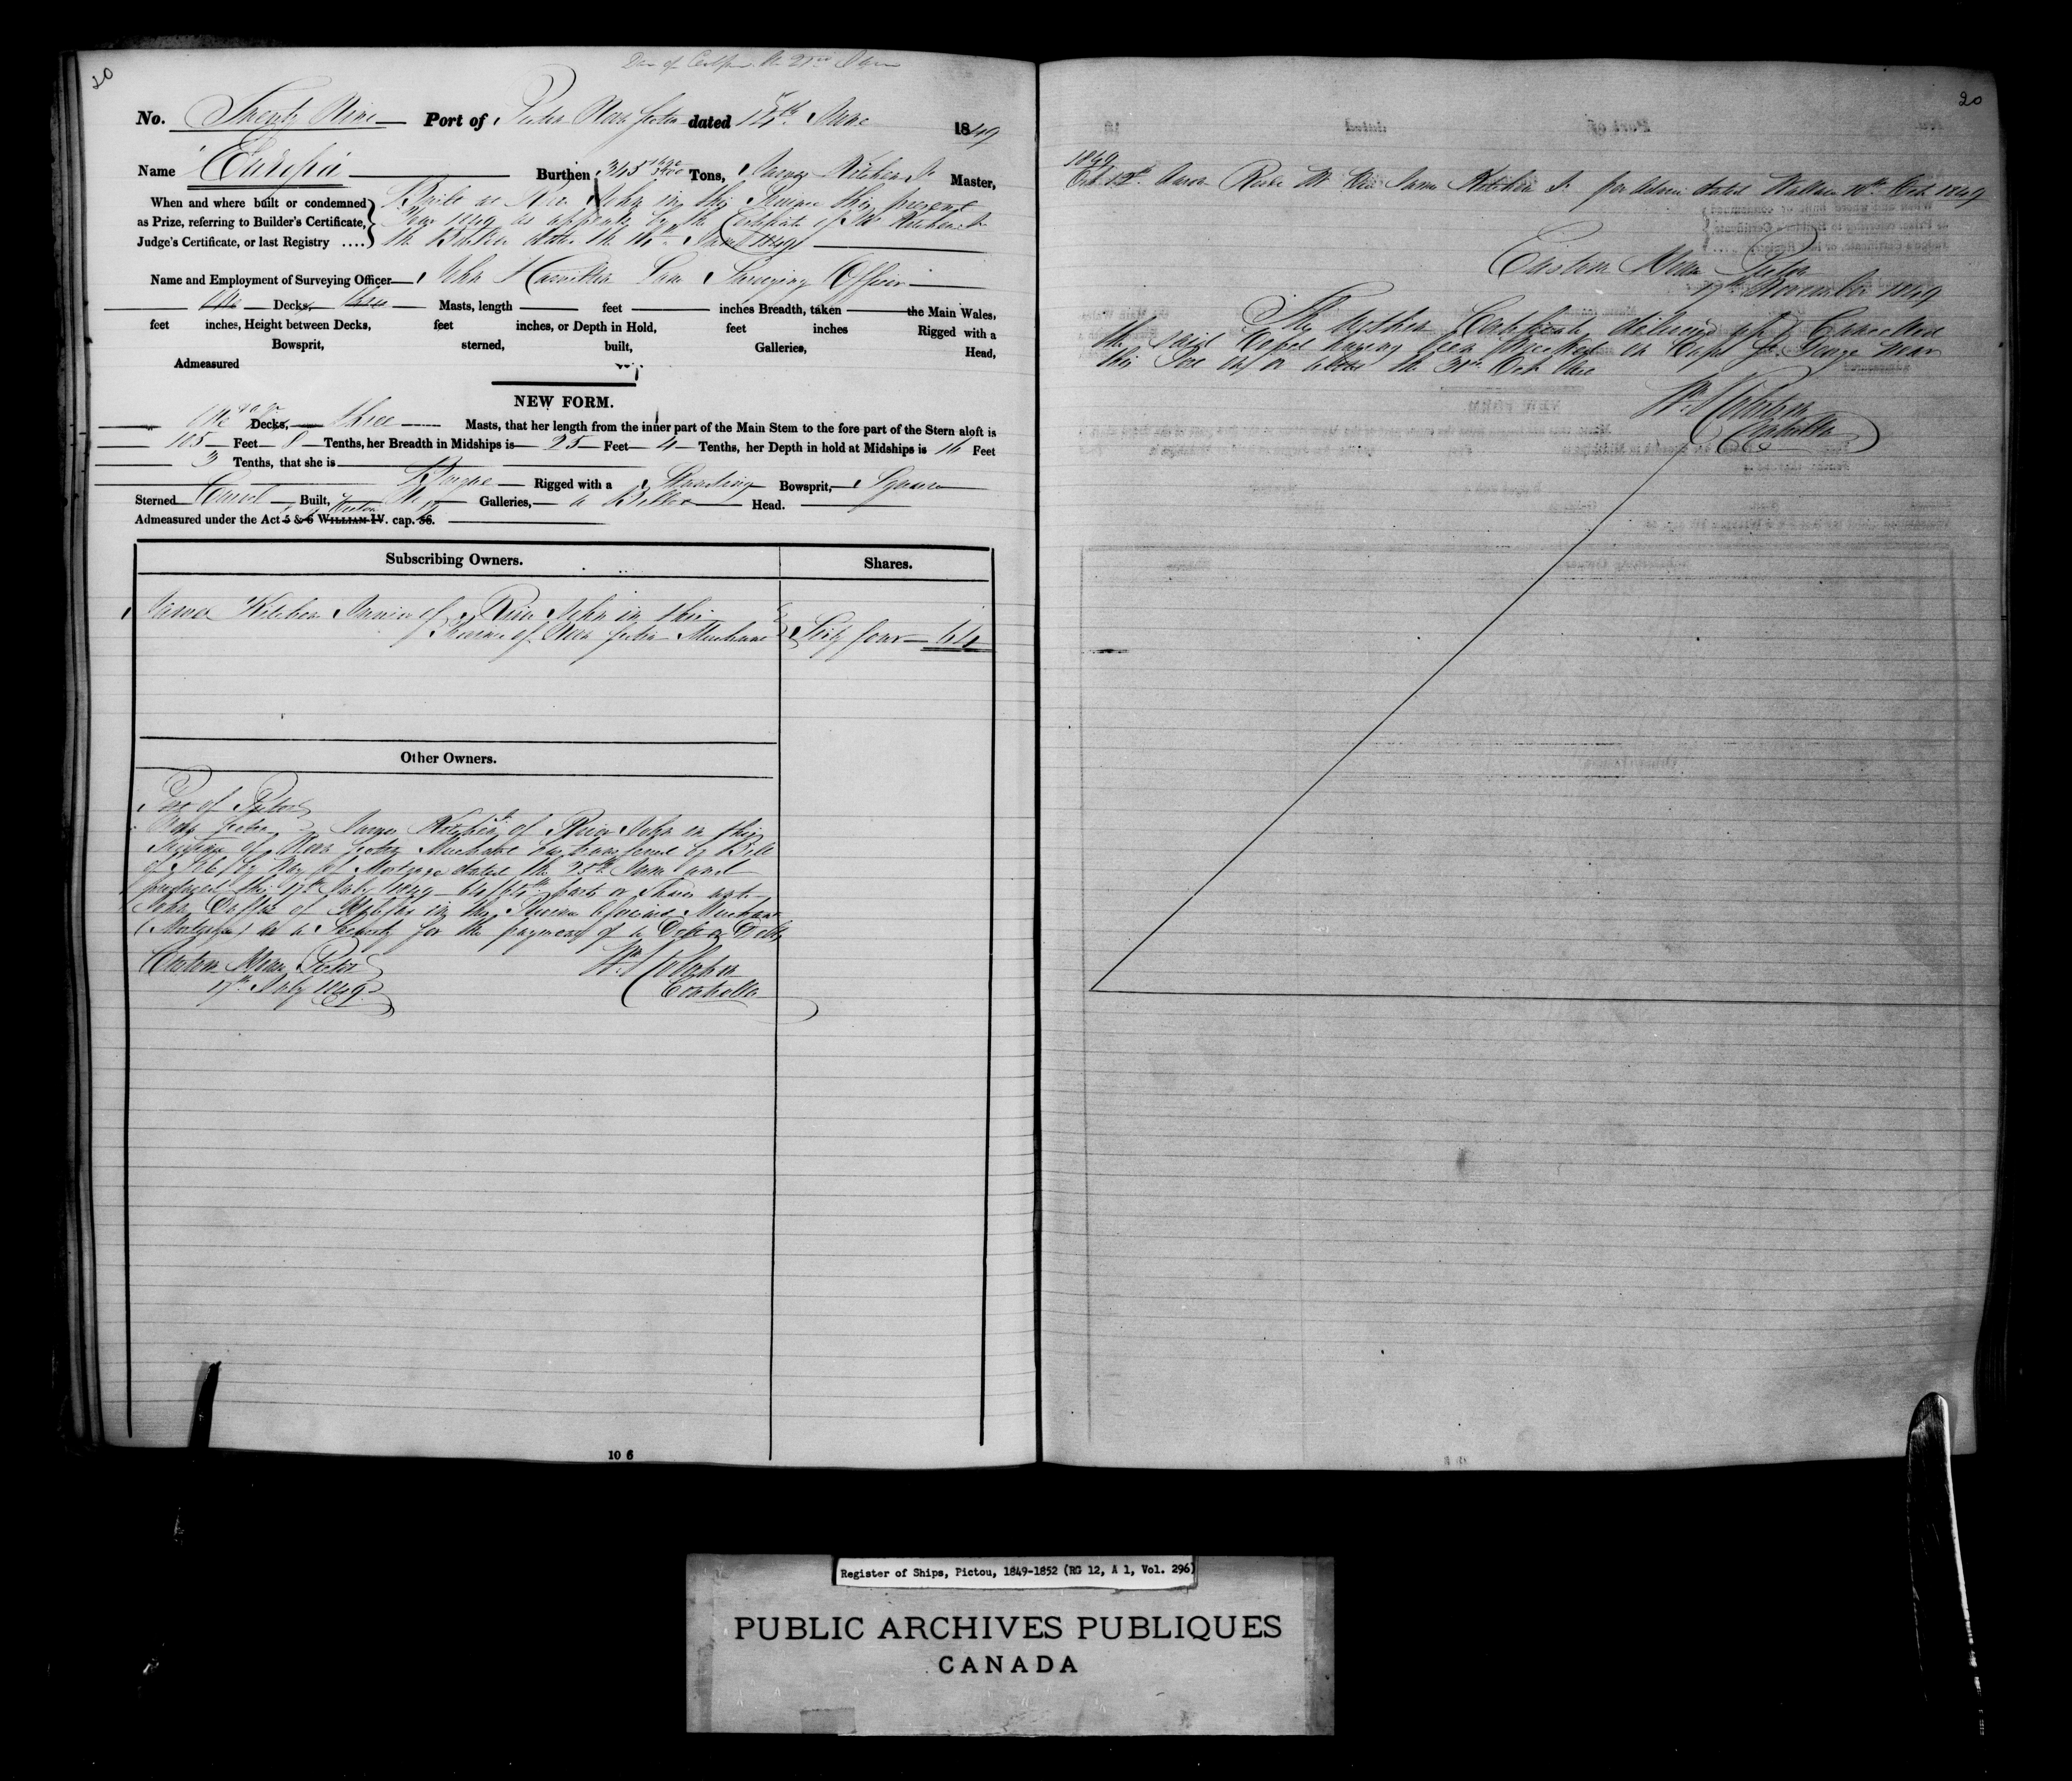 20
No. Twenty Nine Port of Pictou Nova Scotia dated 15th June 1849
Name Europa Burthen 345 Tons, James Kitchin Jr Master,
When and where built or condemned
as Prize, referring to Builder's Certificate,
Judge's Certificate, or last Registry ....
Built at River John in this Province this present
Year 1849 as appears by the Certificate of Kitchin Jr
the Builder dated the June 1849
Name and Employment of Surveying Officer John Hamilton Lane Surveying Officer
One Decks, three Masts, length feet inches Breadth, taken the Main Wales,
feet inches, Height between Decks, feet inches, or Depth in Hold, feet inches Rigged with a
Bowsprit, sterned, built, Galleries, Head,
Admeasured
NEW FORM.
One Decks, three Masts, that her length from the inner part of the Main Stem to the fore part of the Stern aloft is
105 Feet 8 Tenths, her Breadth in Midships is 25 Feet 4 Tenths, her Depth in hold at Midships is 16 Feet
3 Tenths, that she is
Barque Rigged with a Standing Bowsprit, Square
Sterned Carvel Built, No Galleries, a Billet Head.
Admeasured under the Act 5 & 6 WILLIAM IV. cap. 56.
Subscribing Owners. Shares.
James Kitchin Junior of River John in this
Province of Nova Scotia Merchant Sixty four 64
Other Owners.
Port of Pictou
Nova Scotia James Kitchin Jr of River John in this
Province of Nova Scotia Merchant has transferred by Bill
of Sale by Way of Mortgage dated the 25th June and
produced this 17th July 1849 64/64th parts or Shares unto
John Duffus of Halifax in the Province aforesaid Merchant
(Mortgagee) as a Security for the payment of a Debt or Debts
Custom House Pictou
17th July 1849
Controller
10 6
20
1849
Oct 12th James Kitchin Jr per dated Wallace 10th Oct 1849
Custom House Pictou
17th November 1849
The within Certificate delivered up & Cancelled
the said Vessel having been Wrecked on Cape St George near
this Port on or about the 30th Oct
Controller
Register of Ships, Pictou, 1849-1852 (RG 12, A 1, Vol. 296)
PUBLIC ARCHIVES PUBLIQUES
CANADA